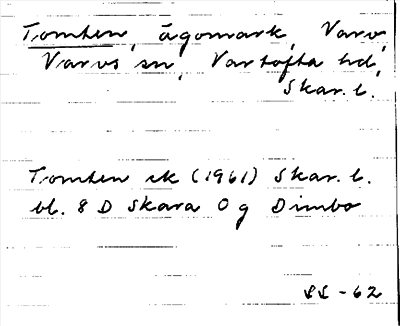 Tomten, ägomark, Varv,
Varvs sn, Vartofta hd,
Skar. l.
Tomten ek (1961) Skar. l.
bl. 8 D Skara O g Dimbo
SL - 62